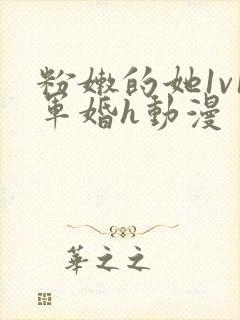 粉嫩的她1v1
軍婚h動漫
華之之